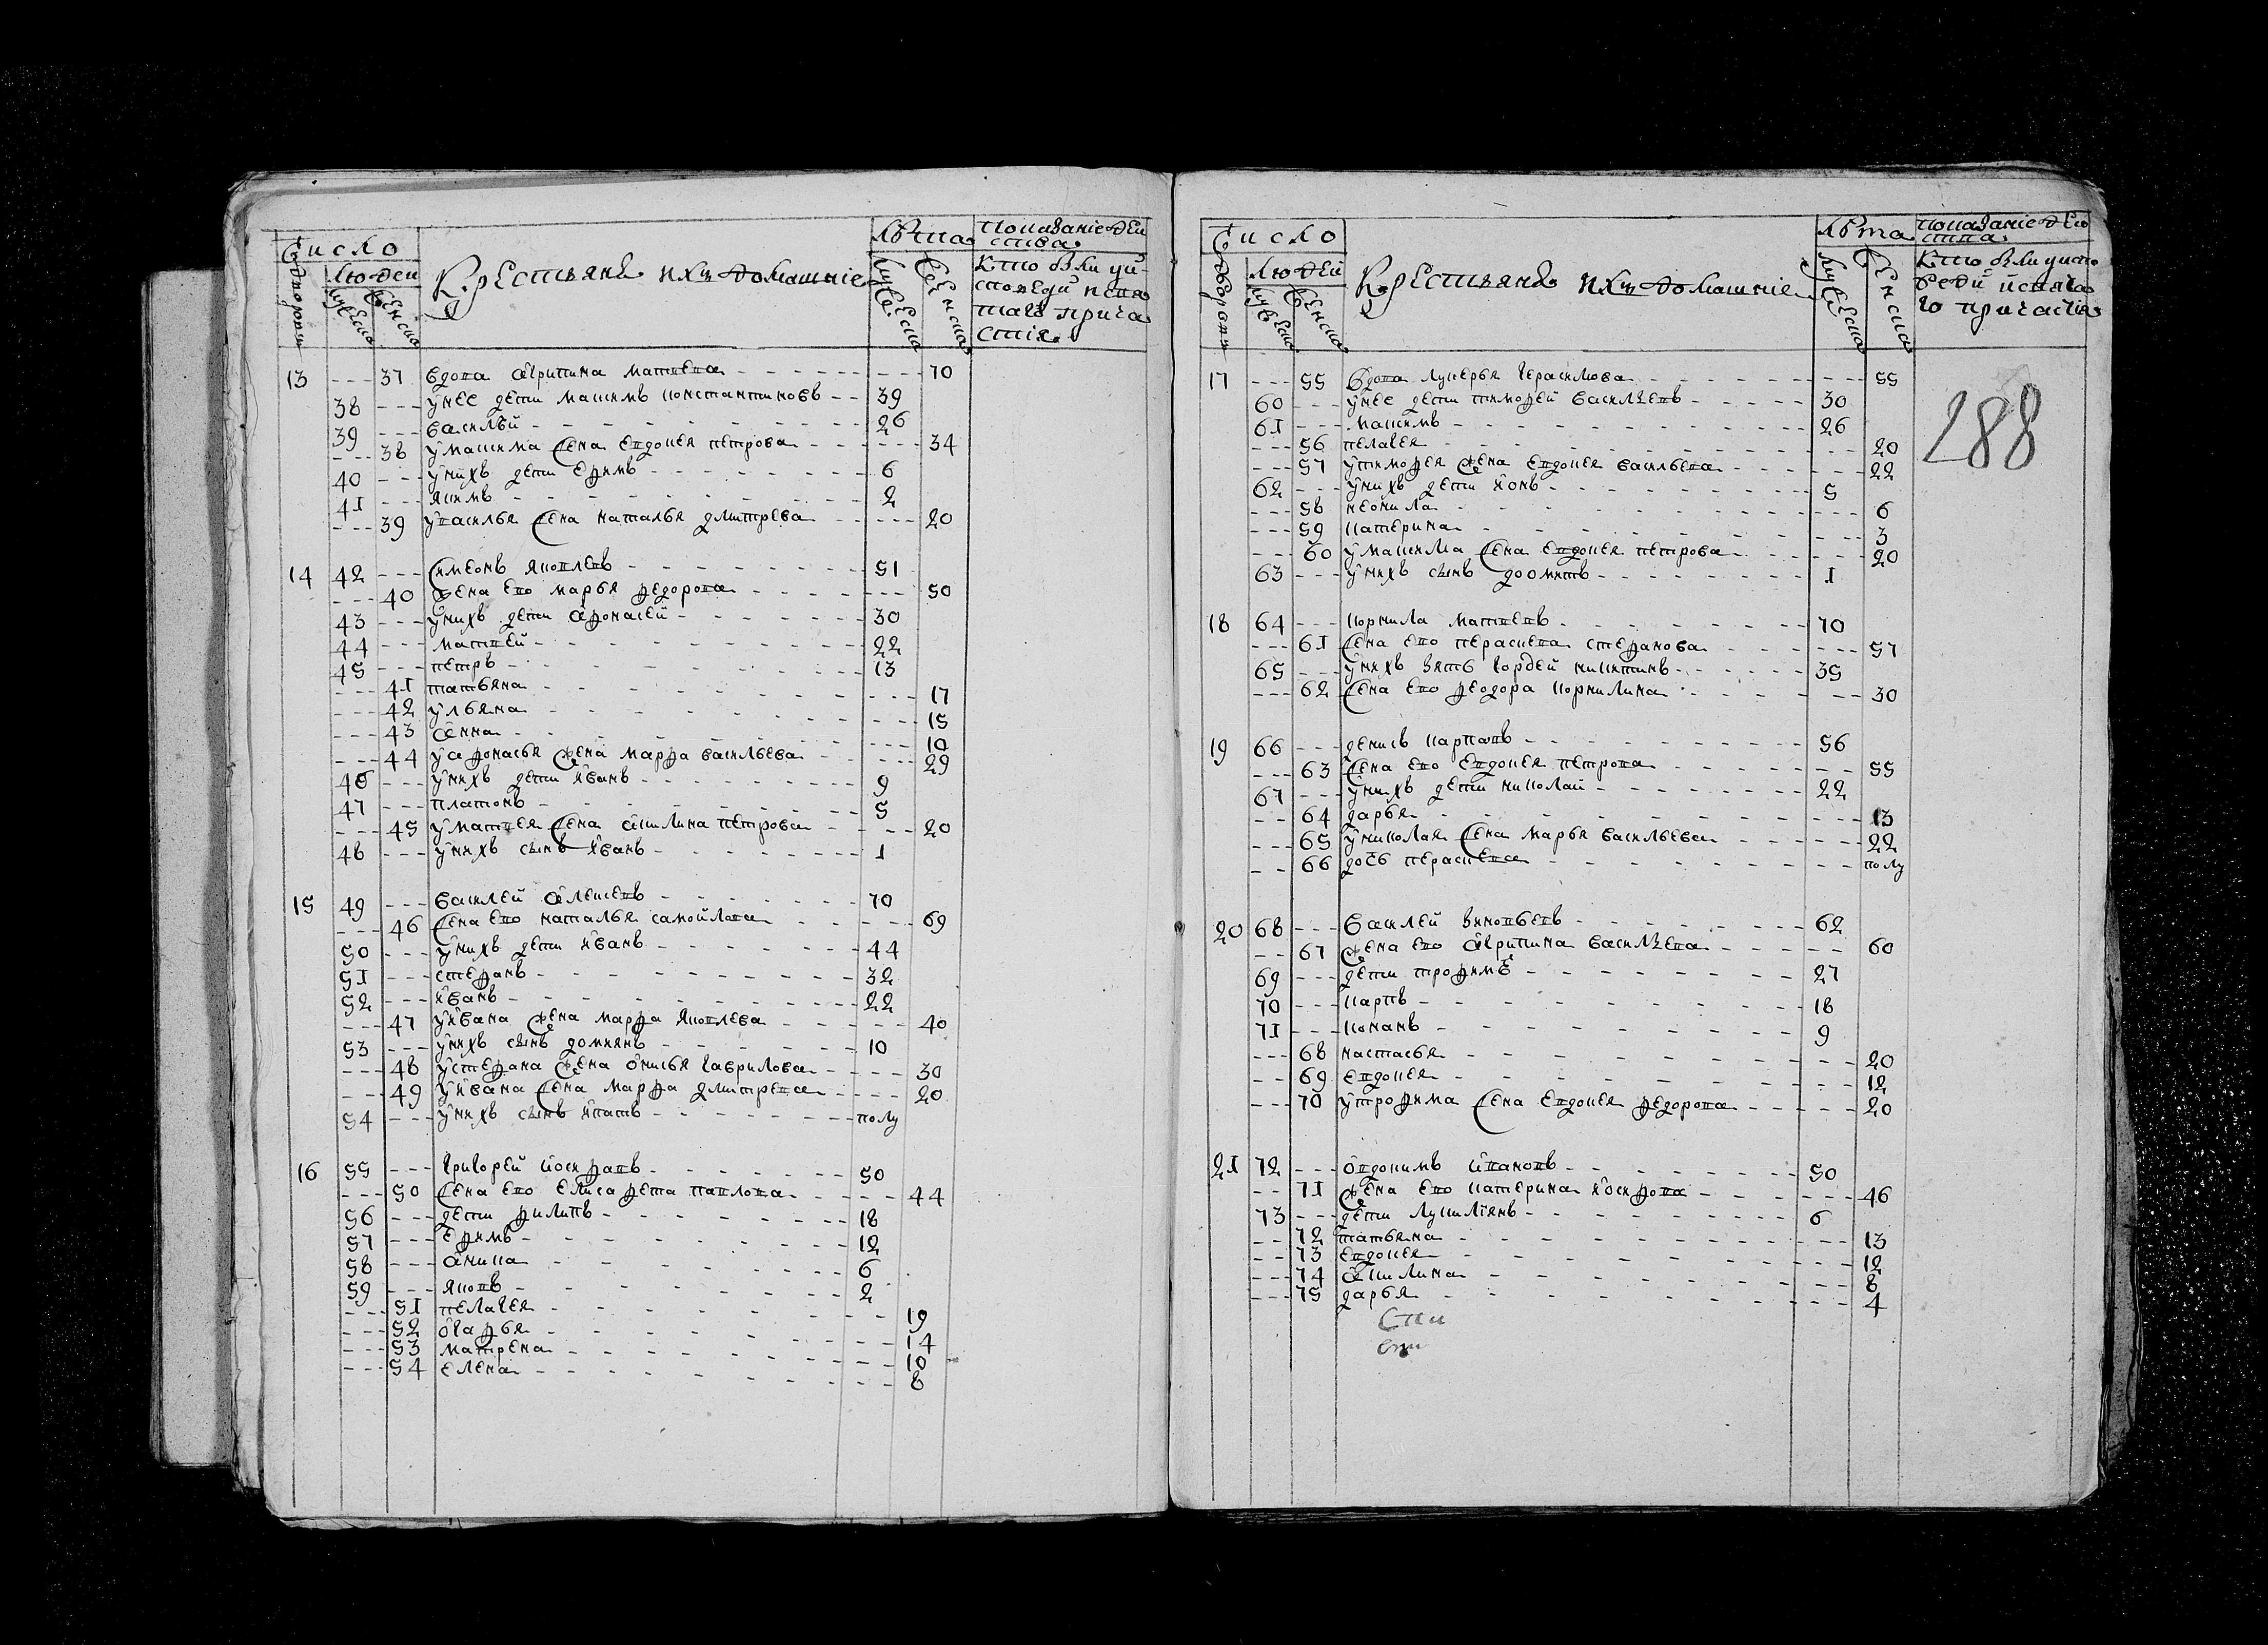 Число
Людей
дворовъ
мужеска
женска
Крестьяне ихъ домашніе
лѣта
мужеска
женска
показаніе дей
ства
кто былъ у и
сповѣди и свя
таго прича
стія
13 --- 37 вдова агрипина матвева --- 70
38 --- у нее дети максимъ константиновъ -- 39
39 --- василѣй --- 26
--- 38 у максима жена евдокея петрова --- 34
40 --- у нихъ дети ефимъ --- 6
41 --- якимъ --- 2
--- 39 у василья жена наталья дмитрева --- 20
14 42 --- симеонъ яковлевъ --- 51
--- 40 жена ево марья федорова --- 50
43 --- у нихъ дети афонасей --- 30
44 --- матвей --- 22
45 --- петръ --- 13
--- 41 татьяна --- 17
--- 42 ульяна --- 15
--- 43 анна --- 10
--- 44 у афонасья жена марфа васильева --- 29
46 --- у нихъ дети иванъ --- 9
47 --- платонъ --- 5
--- 45 у матвея жена акилина петрова --- 20
48 --- у нихъ сынъ иванъ --- 1
15 49 --- василей алексевъ --- 70
--- 46 жена ево наталья самойлова --- 69
50 --- у нихъ дети иванъ --- 44
51 --- стефанъ --- 32
52 --- иванъ --- 22
--- 47 у ивана жена марфа яковлева --- 40
53 --- у нихъ сынъ домиянъ --- 10
--- 48 у стефана жена онисья гаврилова --- 30
--- 49 у ивана жена марфа дмитрева --- 20
54 --- у нихъ сынъ ипатъ --- полу
16 55 --- григорей иосифавъ --- 50
--- 50 жена ево елисафета павлова --- 44
56 --- дети филипъ --- 18
57 --- ефимъ --- 12
58 --- аника --- 6
59 --- яковъ --- 2
--- 51 пелагея --- 19
--- 52 огафья --- 14
--- 53 матрена --- 10
--- 54 елена --- 8
Число
Людей
дворовъ
мужеска
женска
Крестьяне ихъ домашніе
лѣта
мужеска
женска
показаніе дей
ства
кто былъ у испо
веди и свята
го причастія
288
17 --- 55 вдова лукерья герасимова --- 55
60 --- у нее дети тимофей васильевъ --- 30
61 --- максимъ --- 26
--- 56 пелагея --- 20
--- 57 у тимофея жена евдокея васильева --- 22
62 --- у нихъ дети ионъ --- 5
--- 58 неонила --- 6
--- 59 катерина --- 3
--- 60 у максима жена евдокея петрова --- 20
63 --- у нихъ сынъ --- 1
18 64 --- корнила матвевъ --- 70
--- 61 жена ево пераскева стефанова --- 57
65 --- у нихъ зять гордей никитинъ --- 35
--- 62 жена ево феодора корнилина --- 30
19 66 --- денисъ карпавъ --- 56
--- 63 жена ево евдокея петрова --- 55
67 --- у нихъ дети николай --- 22
--- 64 дарья --- 13
--- 65 у николая жена марья васильева --- 22
--- 66 дочь пераскева --- полу
20 68 --- василей зиновьевъ --- 62
--- 67 жена ево агрипина васильева --- 60
69 --- дети трофимъ --- 27
70 --- карпъ --- 18
71 --- кононъ --- 9
--- 68 настасья --- 20
--- 69 евдокея --- 12
--- 70 у трофима жена евдокея федорова --- 20
21 72 --- овдокимъ ивановъ --- 50
--- 71 жена ево катерина иосифова --- 46
73 --- дети лукиліянъ --- 6
--- 72 татьяна --- 13
--- 73 евдокея --- 12
--- 74 акилина --- 8
--- 75 дарья --- 4